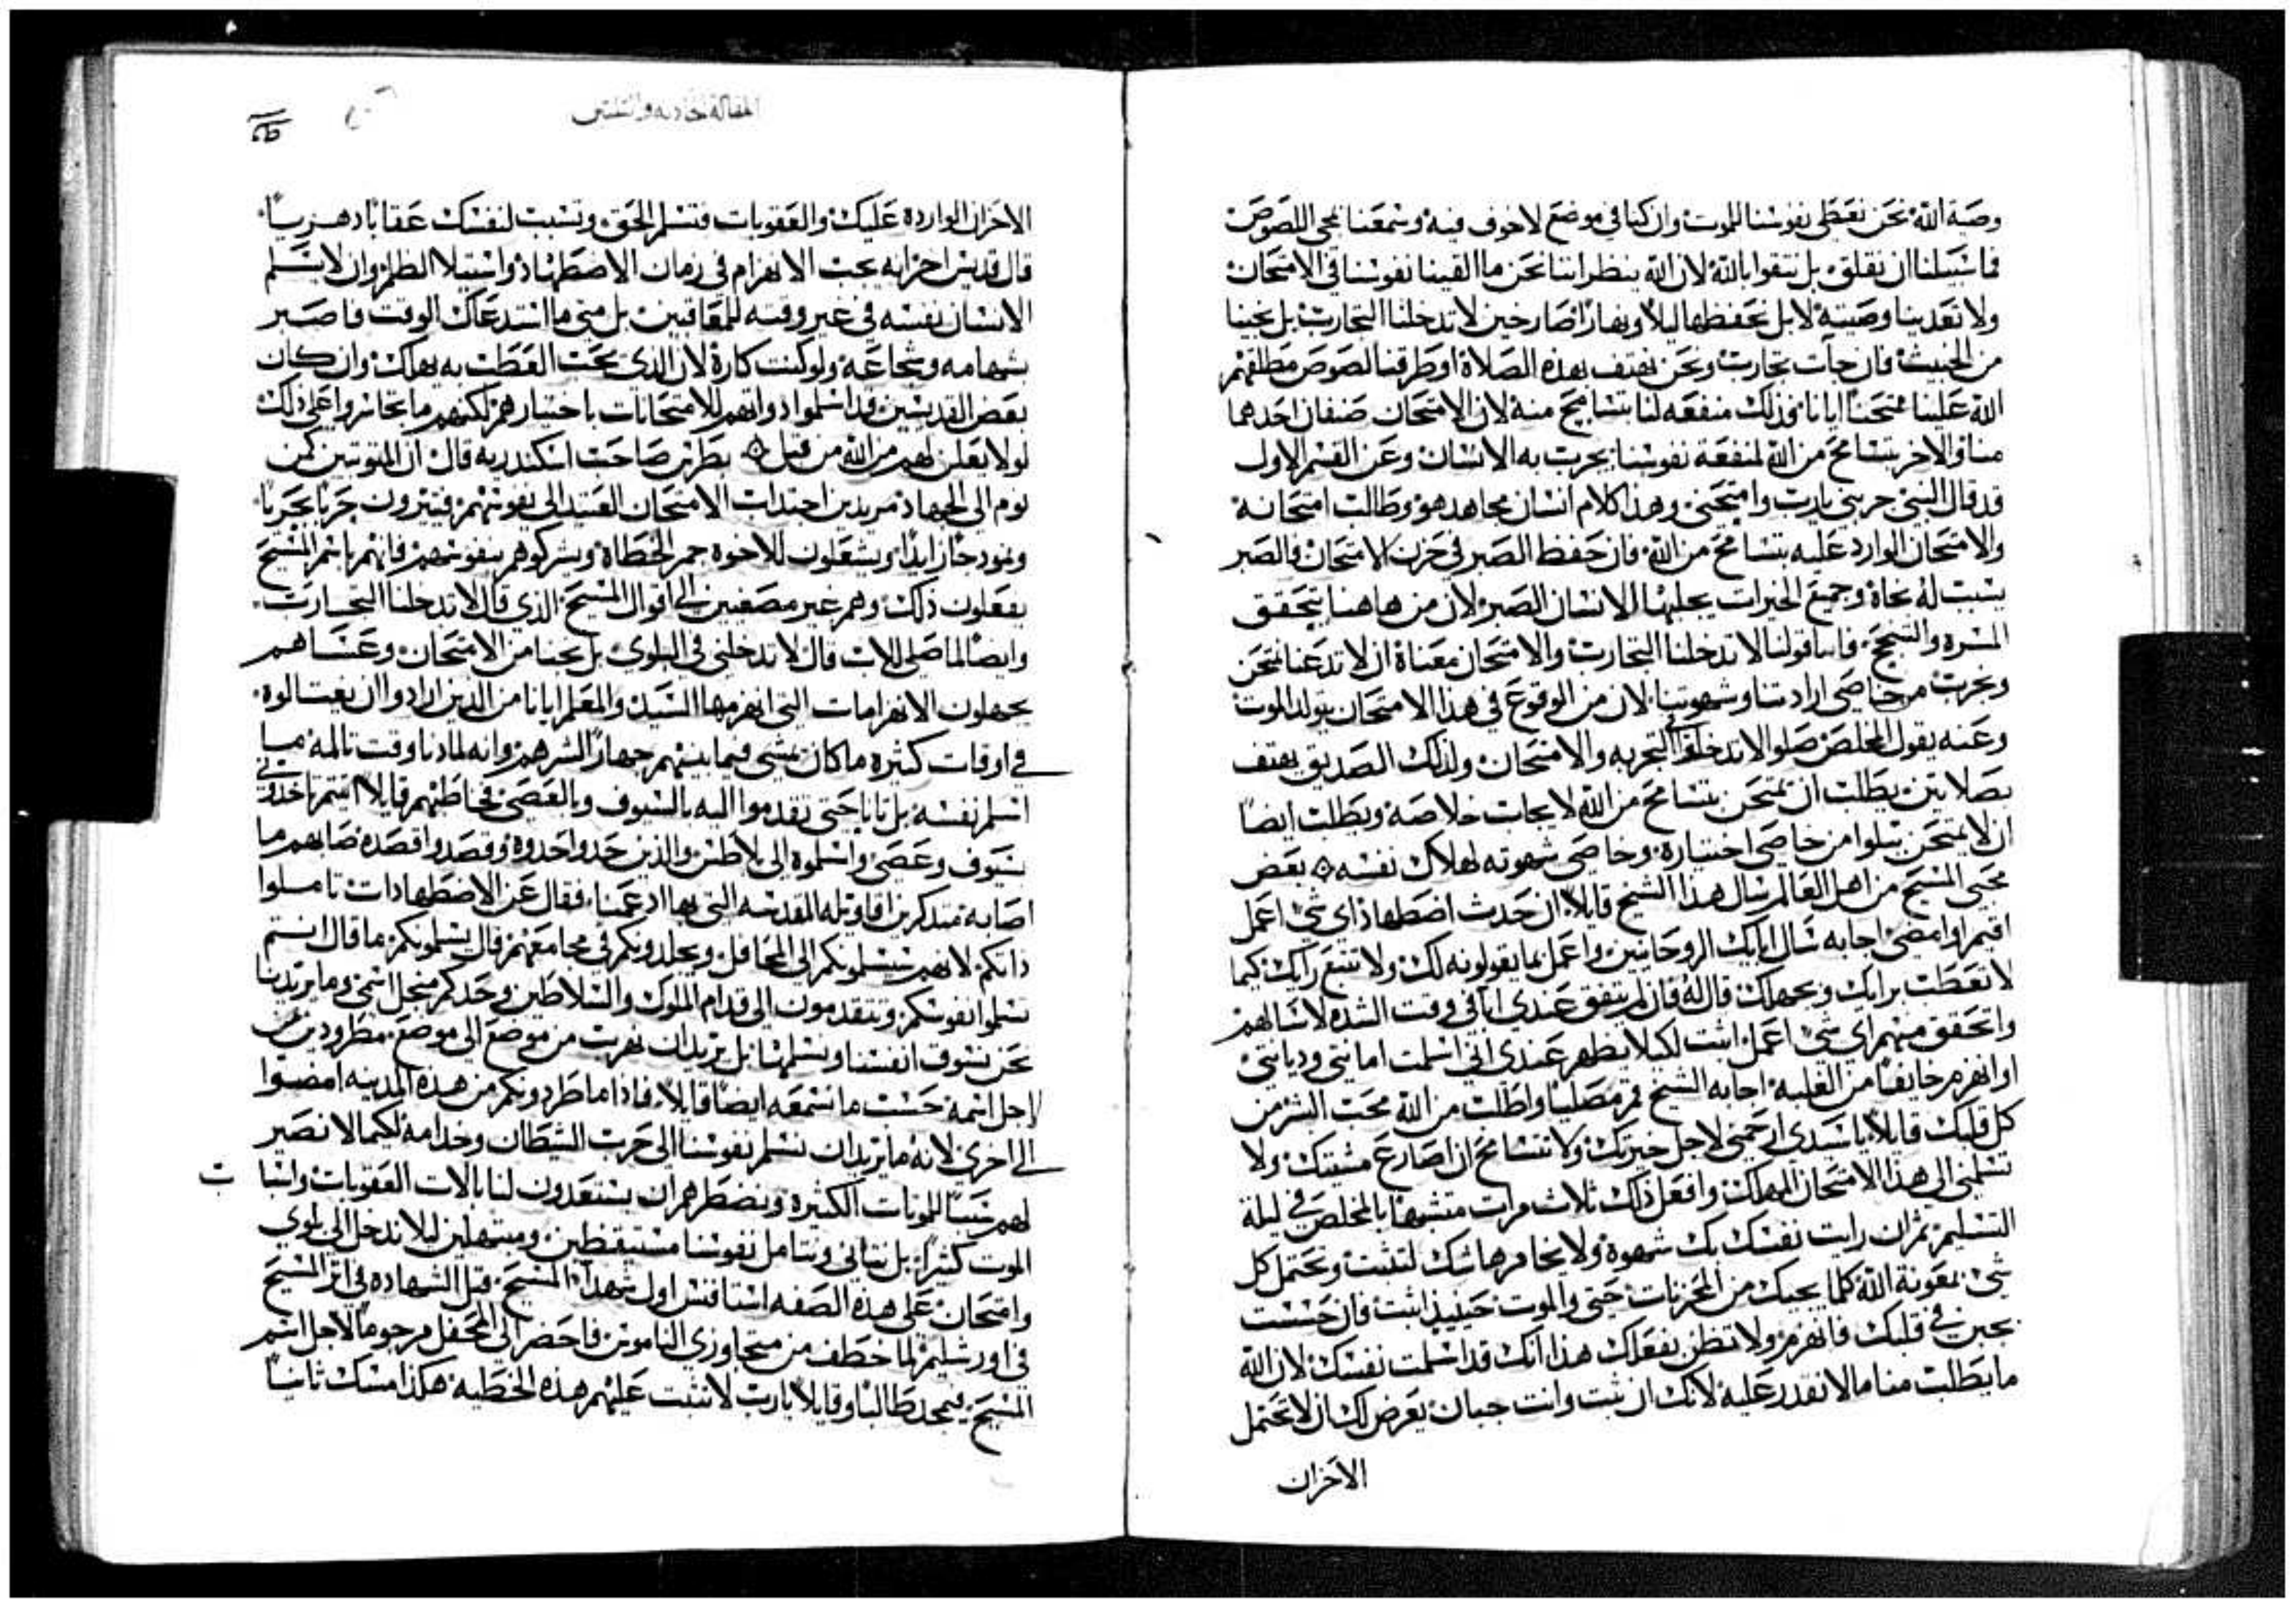 وصية الله نحن نعطى نفوسنا للموت وان كنا فى موضع لاخوف فيه وسمعنا بمجى اللصوص
فما سبيلنا ان نقلق بل نتقوا بالله لان الله ينظر اننا نحن ما القينا نفوسنا فى الامتحان
ولا تعدينا وصيته لابل نحفظها ليلا ونهارا صارخين لا تدخلنا التجارب بل نجينا
من الخبيث فان جات تجارب ونحن نهتف بهذه الصلاة اوطرقنا لصوص مطلقهم
الله علينا ممتحنا ايانا وذلك منفعه لنا بتسامح منه لان الامتحان صنفان احدهما
منا والاخر بتسامح من الله لمنفعة نفوسنا يجرب به الانسان وعن القسم الاول
قد قال النبى جربنى يارب وامتحنى وهذا كلام انسان مجاهد هو وطالب امتحانه
والامتحان الوارد عليه بتسامح من الله فان حفظ الصبر فى حزن الامتحان فالصبر
يسبب له نجاة وجميع الخيرات يجلبها الانسان الصبر لان من هاهنا يتحقق
المسره والنجح فاما قولنا لا تدخلنا التجارب والامتحان معناة ان لا تدعنا نمتحن
ونجرب من خاصى ارادتنا وشهوتنا لان من الوقوع فى هذا الامتحان يتولد الموت
وعنه يقول المخلص صلوا لا تدخلوا فى التجربه والامتحان ولذلك الصديق يهتف
بصلاتين يطلب ان يمتحن بتسامح من الله لايجاب خلاصه ويطلب ايضا
ان لا يمتحن ببلوا من خاصى اختياره وخاصى شهوته لهلاك نفسه ۞ بعض
محبى المسيح من اهل العالم سال هذا الشيخ قايلا ان حدث اضطهاد اى شى اعمل
اقيم او امضى اجابه سال ابايك الروحانيين واعمل بما يقولونه لك ولا تتبع رايك كيما
لا تعطب برايك وبجهلك قال له فان لم يتفق عندى ابا فى وقت الشده لاسالهم
واتحقق منهم اى شى اعمل اثبت لكيلا يظهر عندى انى اسلمت امانتى وديانتى
او انهزم خايفا من الغلبه اجابه الشيخ قم مصليا واطلب من الله محب البشر من
كل قلبك قايلا ياسيدى ارحمنى لاجل خيرتك ولا تتسامح ان اصارع مشيتك ولا
تسلمنى الى هذا الامتحان المهلك وافعل ذلك ثلاث مرات متشبها بالمخلص فى ليلة
التسليم ثم ان رايت نفسك بك شهوة ولا يخامرها شك لتثبت وتحتمل كل
شى بمعونة الله كلما يجيك من المحزنات حتى والموت حينيذ اثبت فان حسست
بجبن فى قلبك فانهزم ولا تظن بفعلك هذا انك قد اسلمت نفسك لان الله
ما يطلب منا ما لا نقدر عليه لانك ان ثبت وانت جبان يعرض لك ان لا تحتمل
الاحزان
المقاله الحاديه والثلثين
الاحزان الوارده عليك والعقوبات فتسلم الحق وتسبب لنفسك عقابا دهريا
قال قديس اخر انه يجب الانهزام فى زمان الاضطهاد واستيلا الظلم وان لا يسلم
الانسان نفسه فى غير وقته للمعاقبين بل متى ما استدعاك الوقت فاصبر
بشهامه وشجاعه ولوكنت كارة لان الذى يحب العطب به يهلك وان كان
بعض القديسين قد اسلموا دواتهم للامتحانات باختيارهم لكنهم ما تجاسروا على ذلك
لولا يعلن لهم من الله من قبل ۞ بطرس صاحب اسكندريه قال ان المتوثبين كمن
نوم الى الجهاد مريدين اجتداب الامتحان العتيد الى نفوسهم فيثيرون
يشعلون للاخوه جمر الخطاة ويشركوهم بنفوسهم فانهم باسم المسيح
يفعلون ذلك وهم غير مصغيين الى اقوال المسيح الذى قال لا تدخلنا التجارب
وايضا لما صلى للاب قال لا تدخلنى فى البلوى بل نجنا من الامتحان وعساهم
يجهلون الانهزامات التى انهزمها السيد والمعلم ايانا من الدين ارادوا ان يغتالوه
فى اوقات كثيره ما كان يمشى فيما بينهم جهارا لشرهم وانه لما دنا وقت تالمه ما
اسلم نفسه بل تانا حتى تقدموا اليه بالسيوف وبالعصى فخاطبهم قايلا انتم تاخدونى
بسيوف وعصى واسلموه الى بلاطس والذين حدوا حدوة وقصدوا قصده صابهم ما
اصابه متدكرين اقاويله المقدسه التى بها ادعمنا فقال عن الاضطهادات تاملوا
ذاتكم لانهم سيسلمونكم الى المحافل ويجلدونكم فى مجامعهم قال يسلمونكم ما قال انتم
تسلموا نفوسكم وتتقدمون الى قدام الملوك والسلاطين وحدكم منجل اسمى وما يريدنا
نحن نسوق انفسنا ونسلمها بل يريد ان نهرب من موضع الى موضع مطرودين من
اجل اسمه حسب ما نسمعه ايضا قايلا فاذا ما طردونكم من هذه المدينه امضوا
الى اخرى لانه ما يريد ان نسلم نفوسنا الى حرب الشيطان وخدامه لكيما لا نصير
لهم سببا للموتات الكثيره ونضطرهم ان يستعدون لنا بالات العقوبات واسبا ب
الموت كثيرا بل نتانى ونتامل نفوسنا مستيقظين ومبتهلين ليلا ندخل الى بلوى
وامتحان على هذه الصفه استافنس اول شهدا المسيح قبل الشهاده فى اثر المسيح
فى اورشليم لما خطف من متجاوزى الناموس فاحضر الى المحفل مرجوما لاجل اسم
المسيح فيمجد طالبا وقايلا يارب لا تثبت عليهم هذه الخطيه هكذا امسك ثانيا